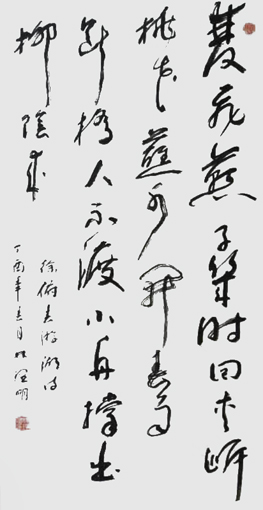 雙飛燕子幾時回夾岸
桃花蘸水開春雨
斷橋人不渡小舟撐出
柳陰來
徐俯春游湖詩
丁酉年春月